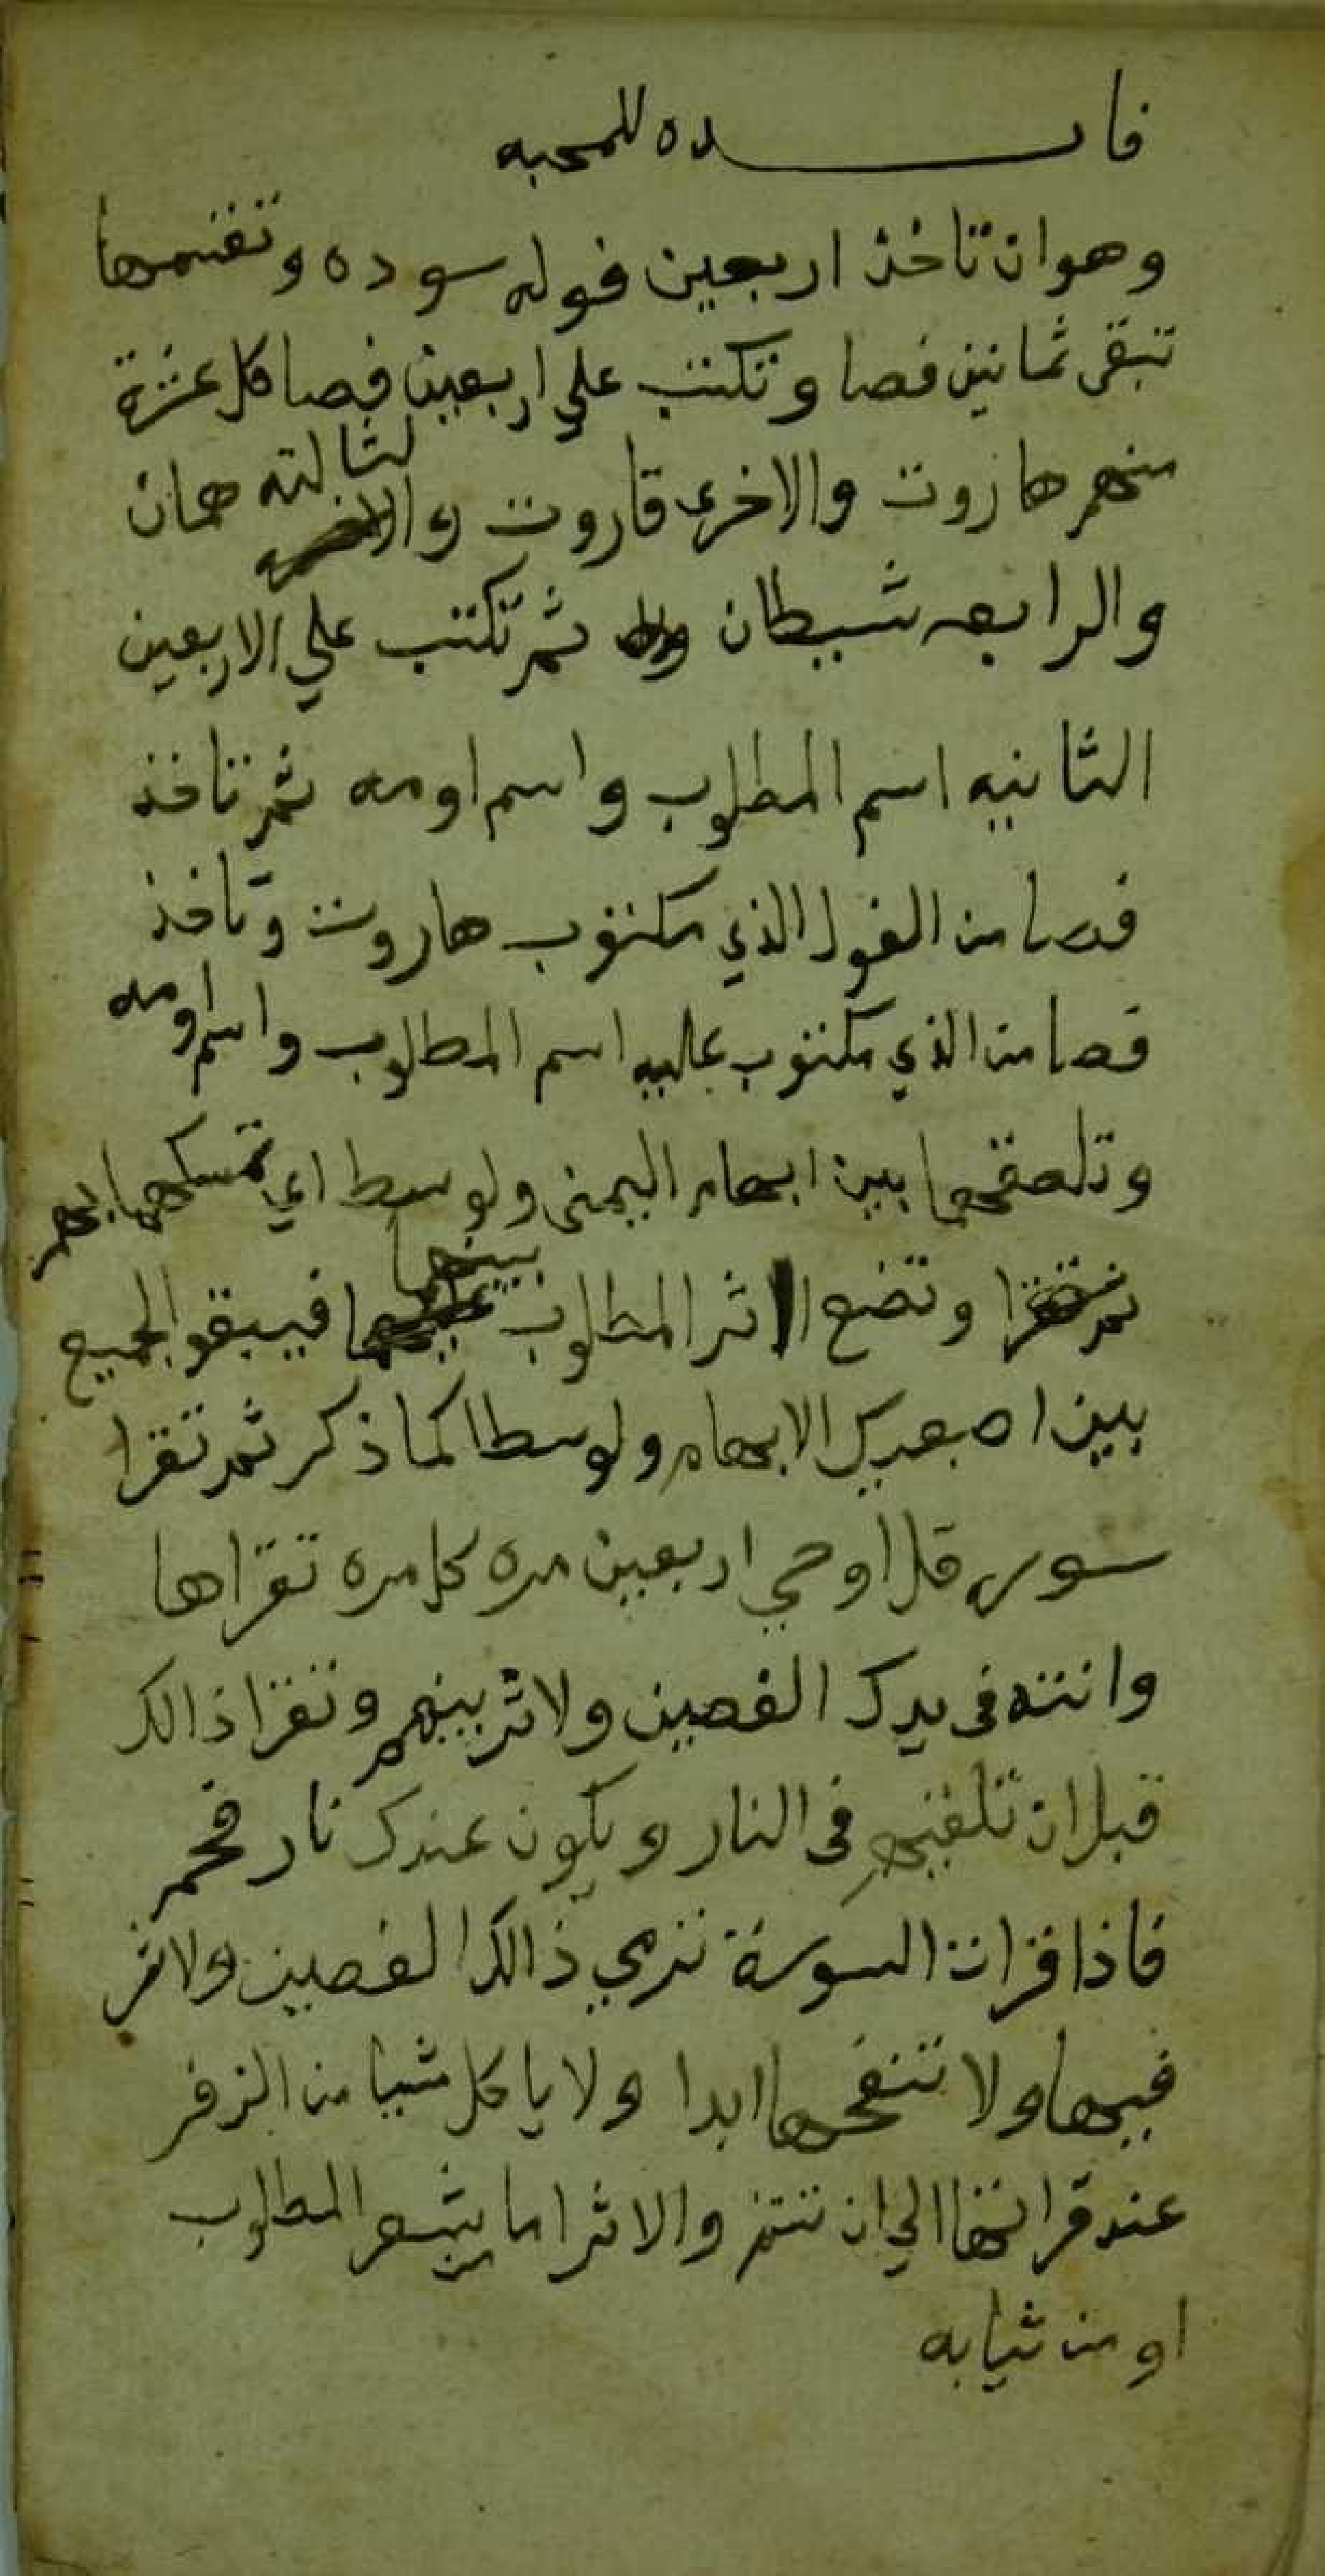 فايـــــده للمحبه
وهو ان تاخذ اربعين فوله سوده وتقسمها
تبقى ثمانين فصا وتكتب علي اربعين فصا كل عشرة
منهم هاروت والاخرى قاروت والثالثه همان
والرابعه شيطان ثم تكتب علي الاربعين
الثانيه اسم المطلوب واسم اومه ثم تاخذ
فصا من الفول الذي مكتوب هاروت وتاخذ
فصا من الذي مكتوب عليه اسم المطلوب واسم اومه
وتلصقهما بين ابهام اليمنى ولوسطا اي تمسكهما بهم
وتضع الاثر المطلوب بينهما فيبقو الجميع
بين اصبعيك الابهام ولوسطا كما ذكر ثم تقرا
سوره قل اوحي اربعين مره كل مره تقراها
وانته في يدك الفصين ولاثر بينهم وتقرا ذالك
قبل ان تلقيهم في النار ويكون عندك نار فحم
فاذا قرات السورة ترمي ذالك الفصين ولاثر
فيها ولا تنفخها ابدا ولا ياكل شيا من الزفر
عند قرانها الي ان تتم والاثر اما بشعر المطلوب
او من ثيابه